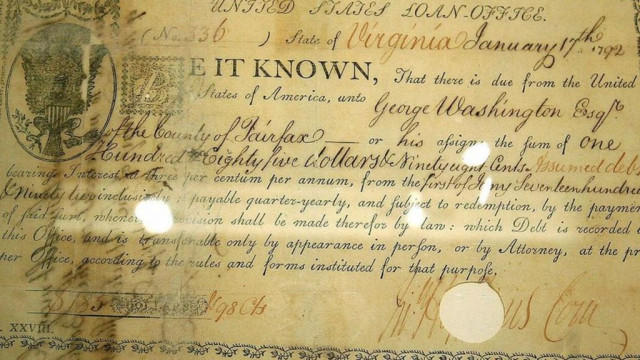 UNITED STATES LOAN-OFFICE.
(No. 336 ) State of Virginia January 17th 1792
BE IT KNOWN, That there is due from the United
States of America, unto George Washington Esqr
of the County of Fairfax or his assigns the sum of one
Hundred Eighty five dollars & Ninety eight Cents Assumed debt
bearing Interest a three per centum per annum, from the first of Jany Seventeen hundred
& Ninety two inclusively payable quarter-yearly, and subject to redemption, by the payment
of said sum, whenever provision shall be made therefor by law: which Debt is recorded
this Office, and is transferable only by appearance in person, or by Attorney, at the
per Office, according to the rules and forms instituted for that purpose,
98 Cts
XXVIII.